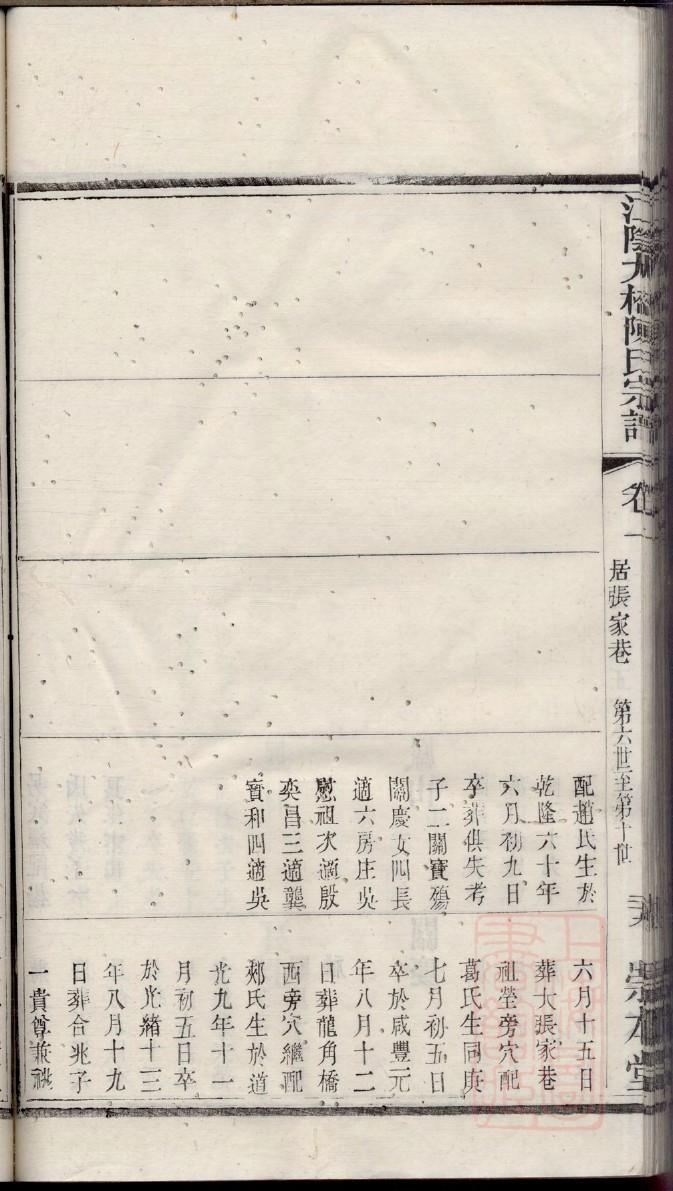 江陰九橋陳氏宗譜
卷一
居張家巷
第六世至第十世
崇本堂
配趙氏生於
乾隆六十年
六月初九日
卒葬俱失考
子二關寶殤
關慶女四長
適六房庄吳
慰祖次適殷
奕昌三適龔
寶和四適吳
六月十五日
葬大張家巷
祖塋旁穴配
葛氏生同庚
七月初五日
卒於咸豐元
年八月十二
日葬龍角橋
西旁穴繼配
郟氏生於道
光九年十一
月初五日卒
於光緒十三
年八月十九
日葬合兆子
一貴尊兼祧